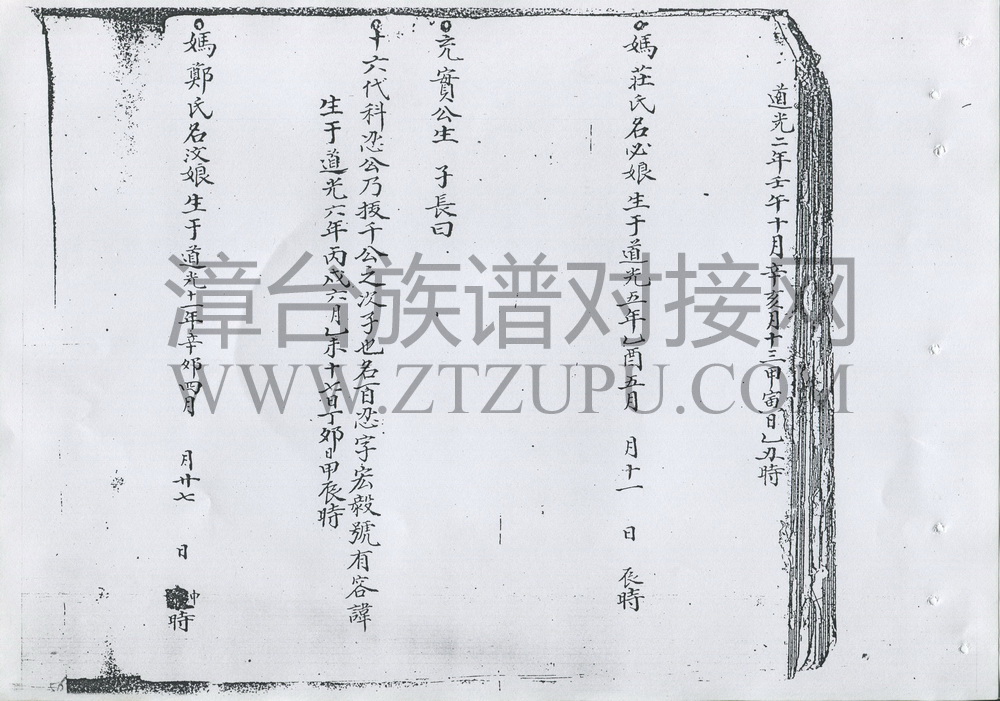 道光二年壬午十月辛亥月十三甲寅日乙丑時
媽莊氏名必娘生于道光五年乙酉五月 月十一 日 辰時
充實公生 子長曰
十六代科恐公乃拔千公之次子也名百忍字宏毅號有容諱
生于道光六年丙戌六月乙未十六日丁夘日甲辰時
媽鄭氏名汶娘生于道光十一年辛夘四月 月廿七 日 時
漳台族谱对接网
WWW.ZTZUPU.COM